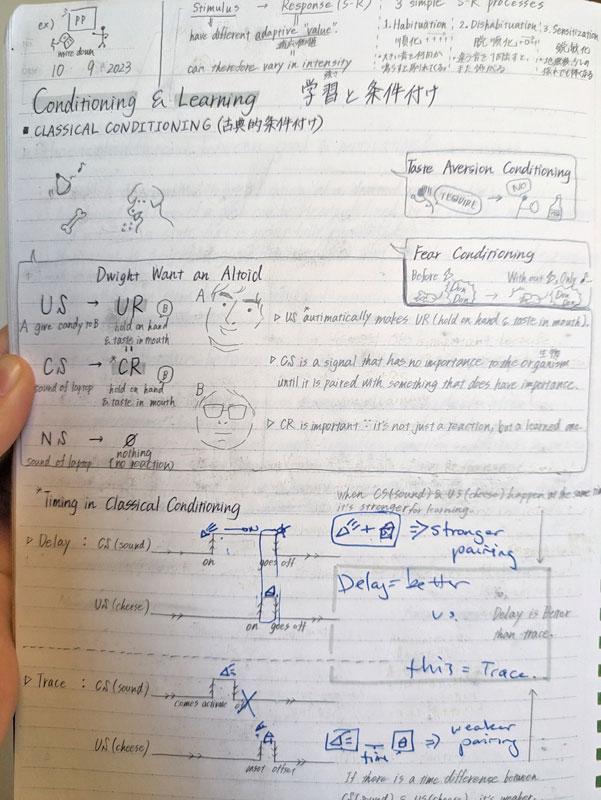 ex)
PP
write down
Stimulus → Response (S-R)
have different adaptive "value".
can therefore vary in intensity
3 simple S-R processes
1. Habituation
2. Dishabituation
3. Sensitization
10 9 2023
Conditioning & Learning 学習と条件付け
■ CLASSICAL CONDITIONING (古典的条件付け)
Taste Aversion Conditioning
TEQUIRE
→
NO
Fear Conditioning
Before
Without
Only
Don
Don
→
Don
Don
Dwight Want an Altoid
US → UR Ⓑ
A give candy to B
hold on hand
& taste in mouth
CS → *CR Ⓑ
sound of laptop
hold on hand
& taste in mouth
NS → ∅
sound of laptop
nothing
(no reaction)
A
B
▷ US automatically makes UR (hold on hand & taste in mouth).
生物
▷ CS is a signal that has no importance to the organism
until it is paired with something that does have importance.
▷ CR is important ∵ it's not just a reaction, but a learned one.
*Timing in Classical Conditioning
When CS(sound) & US(cheese) happen at the same time
it's stronger for learning.
▷ Delay : CS (sound)
on
ON
goes off
+
⇒ stronger
pairing
US (cheese)
on
goes off
Delay = better
vs.
this = Trace.
So,
Delay is better
than trace.
▷ Trace : CS (sound)
comes activate
off
US (cheese)
onset
offset
time
⇒ weaker
pairing
If there is a time difference between
CS(sound) & US(cheese), it's weaker